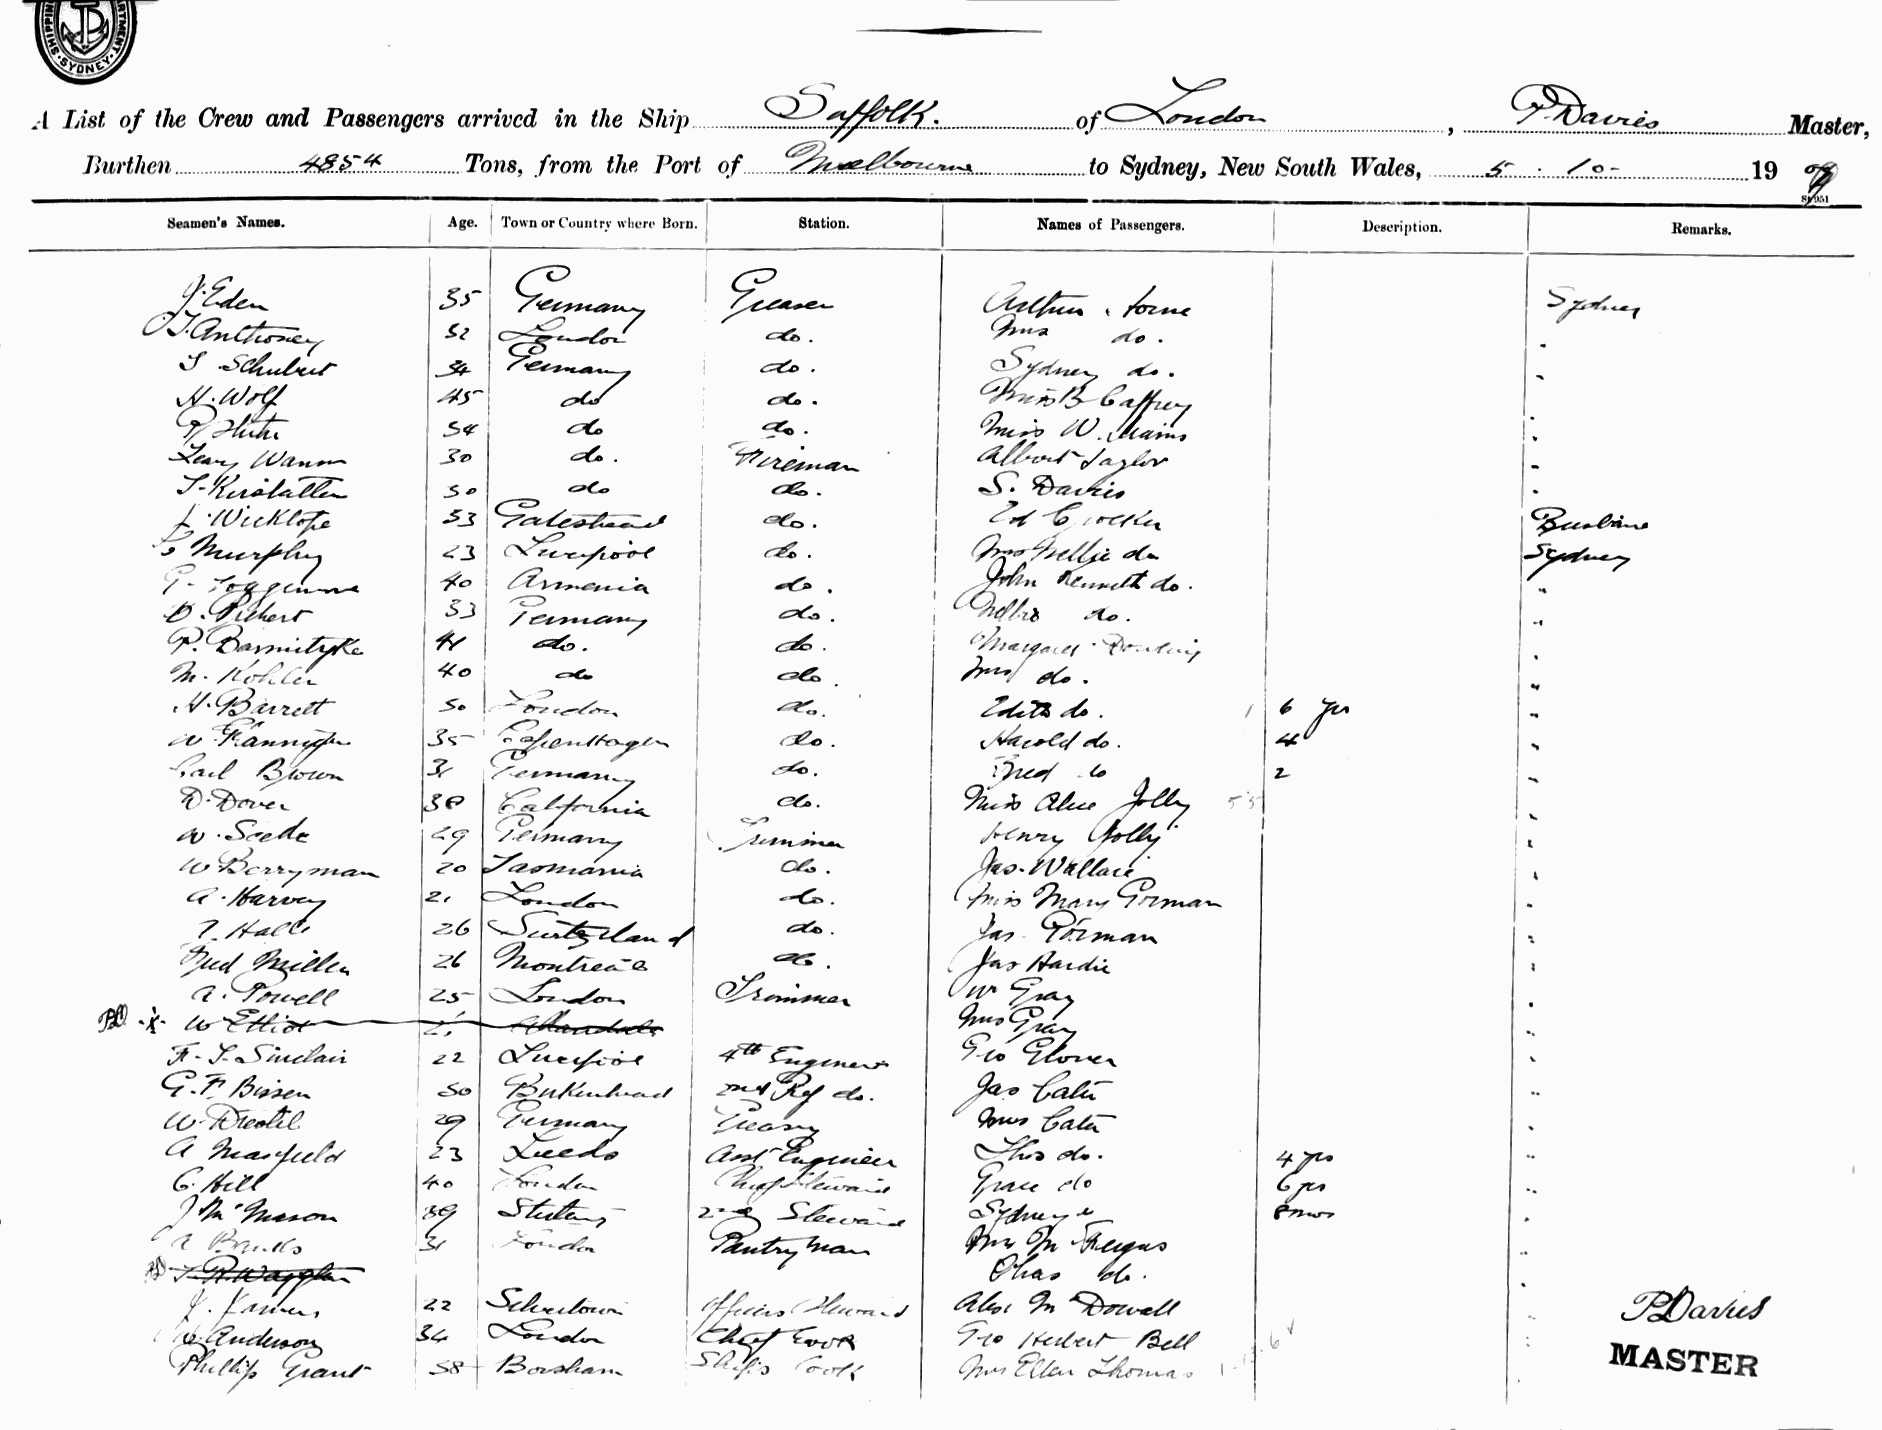 SHIPPING DEPARTMENT SYDNEY
A List of the Crew and Passengers arrived in the Ship Suffolk. of London, P. Davies Master,
Burthen 4854 Tons, from the Port of Melbourne to Sydney, New South Wales, 5. 10- 19
Seamen's Names. Age. Town or Country where Born. Station. Names of Passengers. Description. Remarks.
J. Eden 35 Germany Greaser Arthur Sydney
Anthoney 32 London do. Mrs do.
Schubert 34 Germany do. Sydney do.
H. Wolf 45 do do. Miss B Caffrey
54 do do. Miss W. Mains
30 do. Fireman Albert Taylor
30 do do. S. Davies
53 Gateshead do. Ed Crocker Brisbane
Murphy 23 Liverpool do. Mrs Nellie do Sydney
G. 40 Armenia do. John Kenneth do.
33 Germany do. Nellie do.
41 do. do. Margaret Dowling
M. Kohler 40 do do. Mrs do.
H. Barrett 50 London do. Edith do. 6 yrs
W 35 Copenhagen do. Harold do. 4
Carl Brown 31 Germany do. Fred do 2
D. Dover 38 California do. Miss Alice Jolly
W. 29 Germany Trimmer Henry Jolly
W Berryman 20 Tasmania do. Jas. Wallace
A. Harvey 21 London do. Miss Mary Gorman
26 Switzerland do. Jas. Gorman
Fred Miller 26 Montreal do. Jas Hardie
A. Powell 25 London Trimmer Wm Gray
W Elliot 21 Mrs Gray
F. S. Sinclair 22 Liverpool 4th Engineer Geo Glover
G. F. Bissen 30 Birkenhead 2nd Ref do. Jas Cater
W. 29 Germany Greaser Mrs Cater
A Masfield 23 Leeds Asst Engineer Thos do. 4 yrs
C. Hill 40 London Chief Steward Grace do 6 yrs
J McMason 39 2nd Steward Sydney do 8 mos
A Banks 31 London Pantryman Mrs M Fergus
Chas do.
J. 22 Silvertown Officers Steward Alex McDowell
Anderson 34 London Chief Cook Geo Herbert Bell
Phillip Grant 38 Ships Cook Mrs Ellen Thomas
P Davies
MASTER